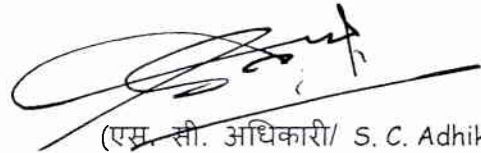 (एस. सी. अधिकारी/ S. C. Adhik